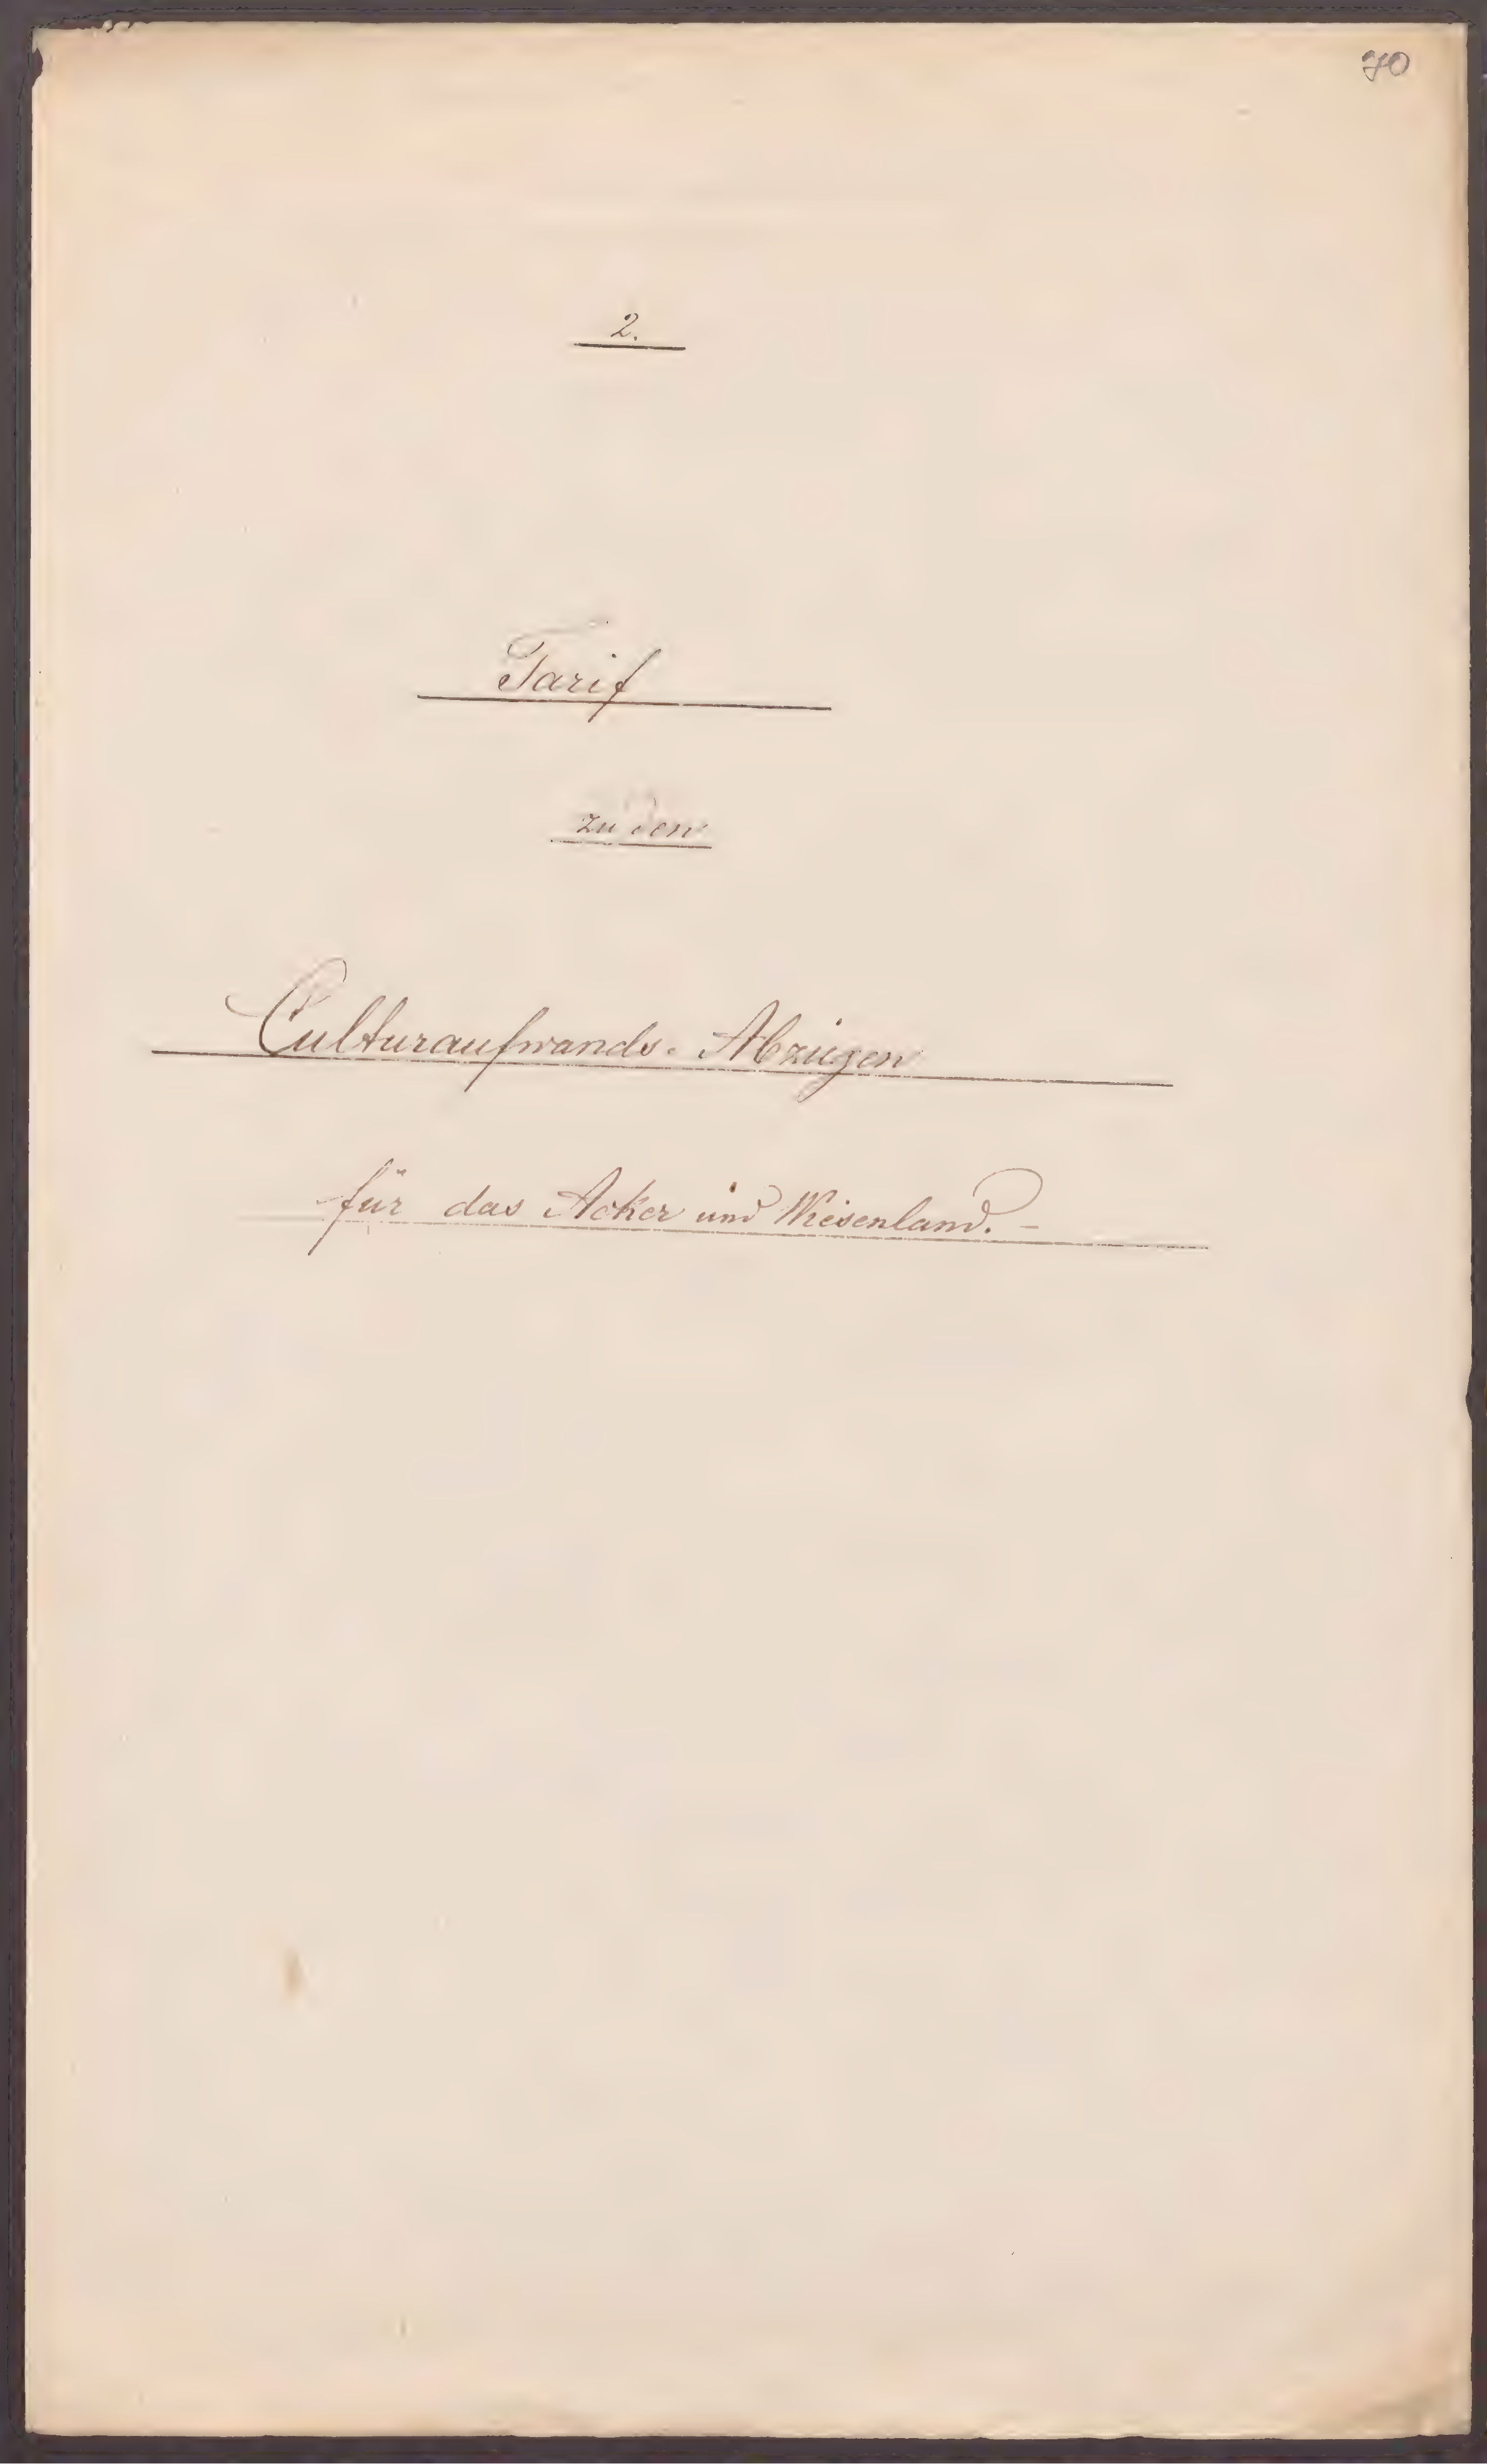 70
2.
Tarif
zu den
Culturaufwands-Abzügen
für das Acker und Wiesenland. -